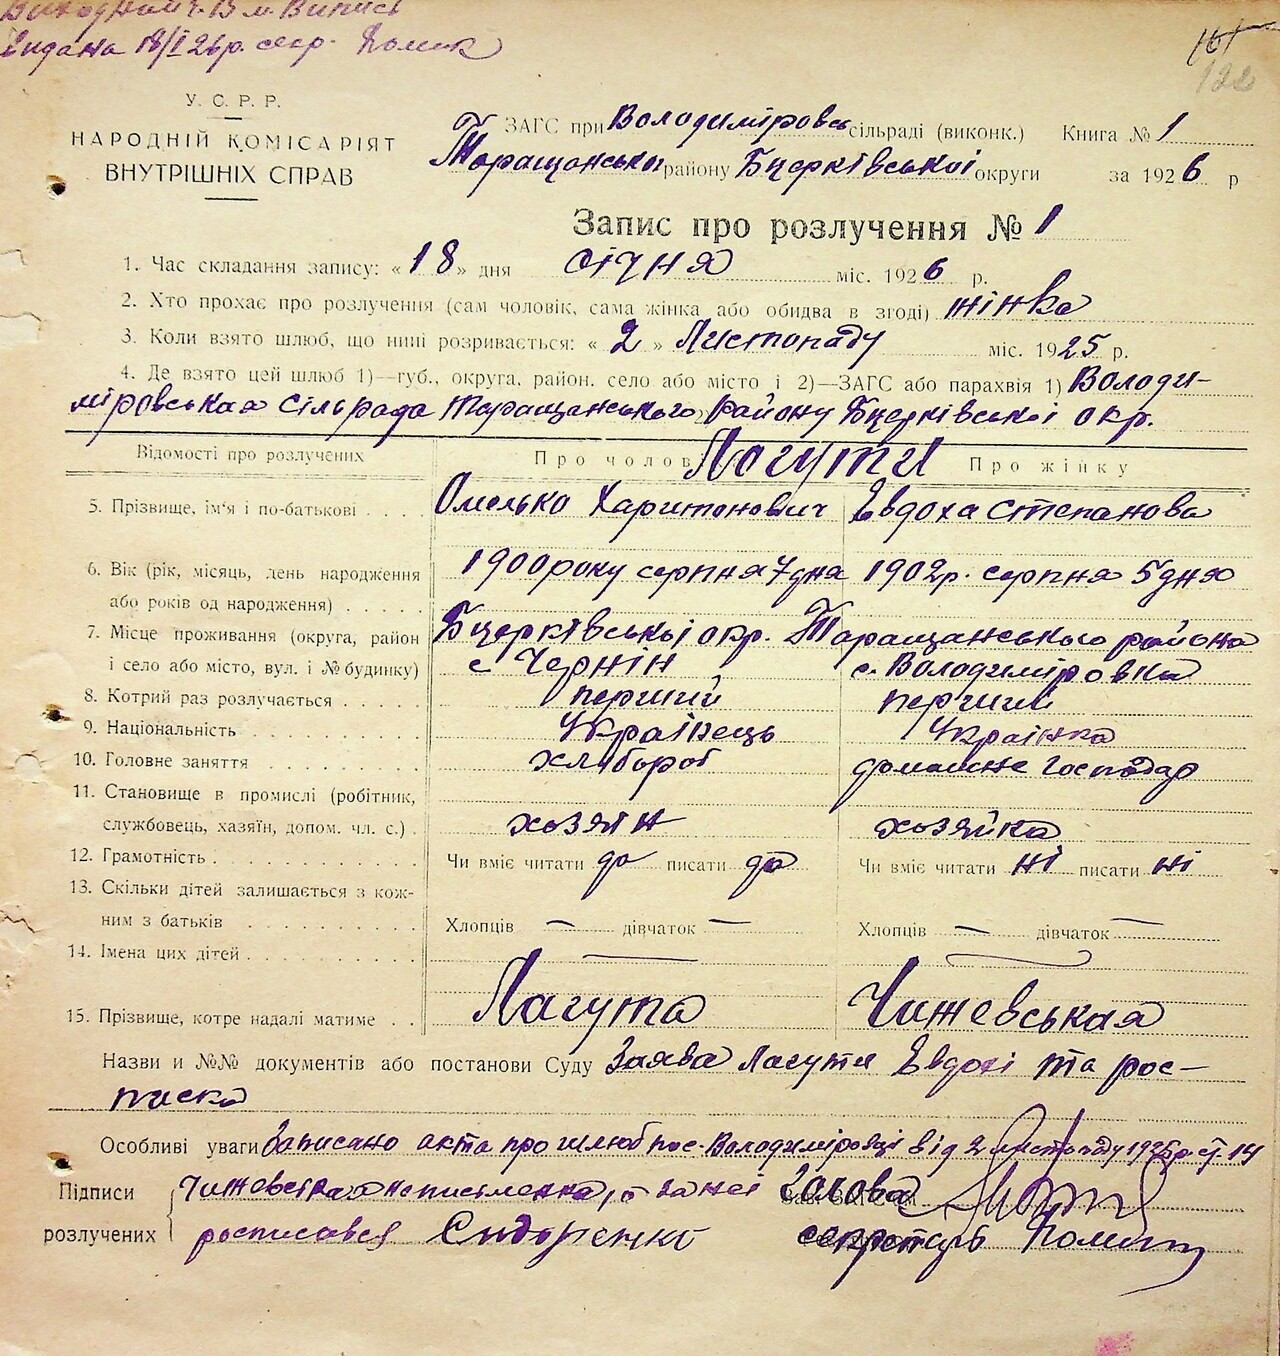 Видана 18/I 26 р. секр.
161
122
У. С. Р. Р.
НАРОДНІЙ КОМІСАРІЯТ
ВНУТРІШНІХ СПРАВ
ЗАГС при Володиміровсь сільраді (виконк.) Книга № 1
Таращанськоі району Бцерківськоі округи за 1926 р
Запис про розлучення № 1
1. Час складання запису: « 18 » дня січня міс. 1926 р.
2. Хто прохає про розлучення (сам чоловік, сама жінка або обидва в згоді) жінка
3. Коли взято шлюб, що нині розривається: « 2 » Листопаду міс. 1925 р.
4. Де взято цей шлюб 1)—губ., округа, район. село або місто і 2)—ЗАГС або парахвія 1) Володи-
міровськая сільрада Таращанського району Бцерківськоі окр.
Відомості про розлучених Про чолов Лагути Про жінку
5. Прізвище, ім'я і по-батькові Омелько Харитонович Евдоха Степанова
6. Вік (рік, місяць, день народження 1900 року серпня 7 дня 1902 р. серпня 5 дня
або років од народження)
7. Місце проживання (округа, район Бцерківськоі окр. Таращанського района
і село або місто, вул. і № будинку) с Чернін с. Володиміровка
8. Котрий раз розлучається перший перший
9. Національність Українець Українка
10. Головне заняття хлібороб домашне господар
11. Становище в промислі (робітник,
службовець, хазяїн, допом. чл. с.) хозяін хозяйка
12. Грамотність Чи вміє читати да писати да Чи вміє читати ні писати ні
13. Скільки дітей залишається з кож-
ним з батьків Хлопців — дівчаток — Хлопців — дівчаток —
14. Імена цих дітей —
15. Прізвище, котре надалі матиме Лагута Чижевськая
Назви и №№ документів або постанови Суду Заява Лагути Евдохі та рос-
писка
Особливі уваги Записано акта про шлюб пос. Володиміровці від 2 листопаду 1925 р. ст. 14
Підписи Чижевская неписьменна, а за неі Голова
розлучених росписався Сидоренко секретарь